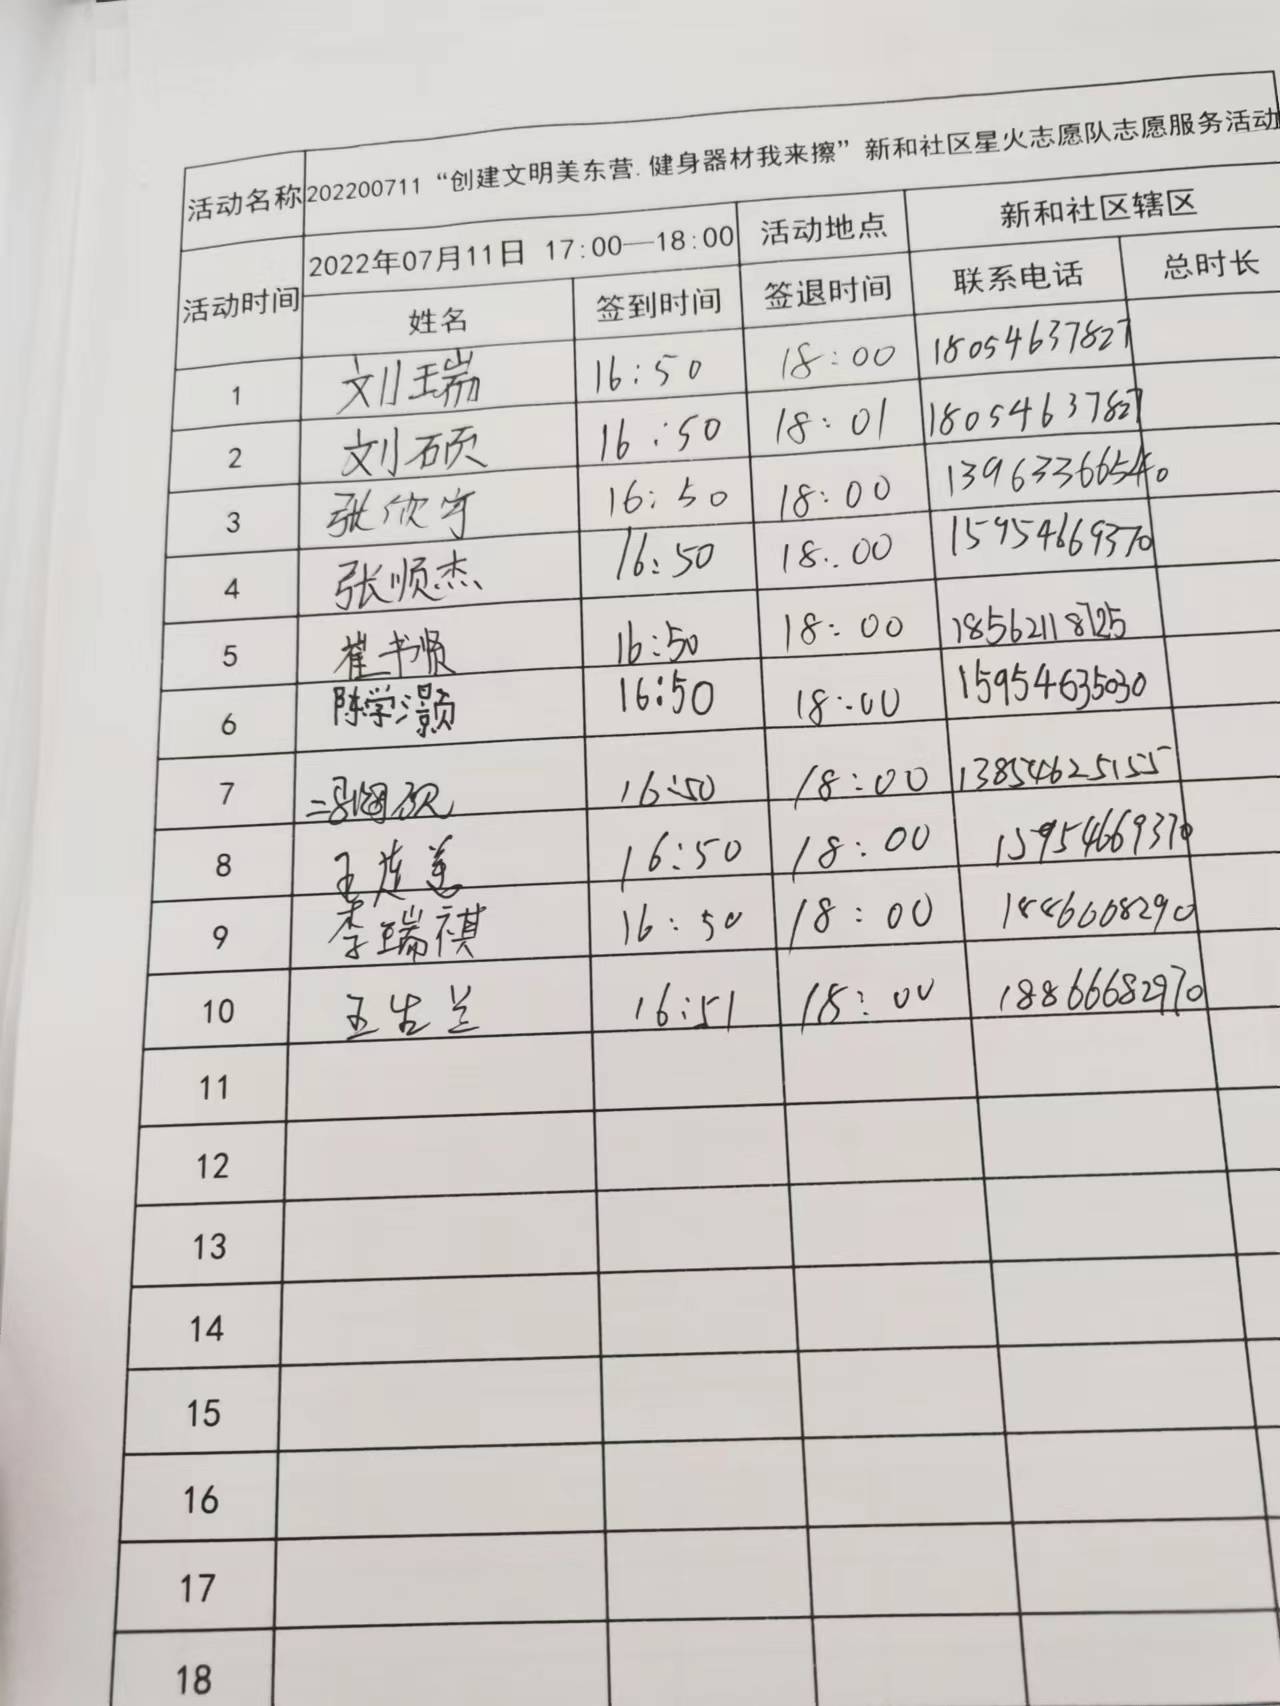 活动名称 202200711“创建文明美东营.健身器材我来擦”新和社区星火志愿队志愿服务活动
活动时间 2022年07月11日 17:00—18:00 活动地点 新和社区辖区
姓名 签到时间 签退时间 联系电话 总时长
1 刘瑞 16:50 18:00 18054637827
2 刘硕 16:50 18:01 18054637827
3 张欣宇 16:50 18:00 13963366540
4 张顺杰 16:50 18:00 15954669370
5 崔书贤 16:50 18:00 18562118725
6 陈学灏 16:50 18:00 15954635030
7 16:50 18:00 13854625155
8 王莲美 16:50 18:00 15954669370
9 李瑞祺 16:50 18:00
10 王 兰 16:51 18:00 18866682970
11
12
13
14
15
16
17
18